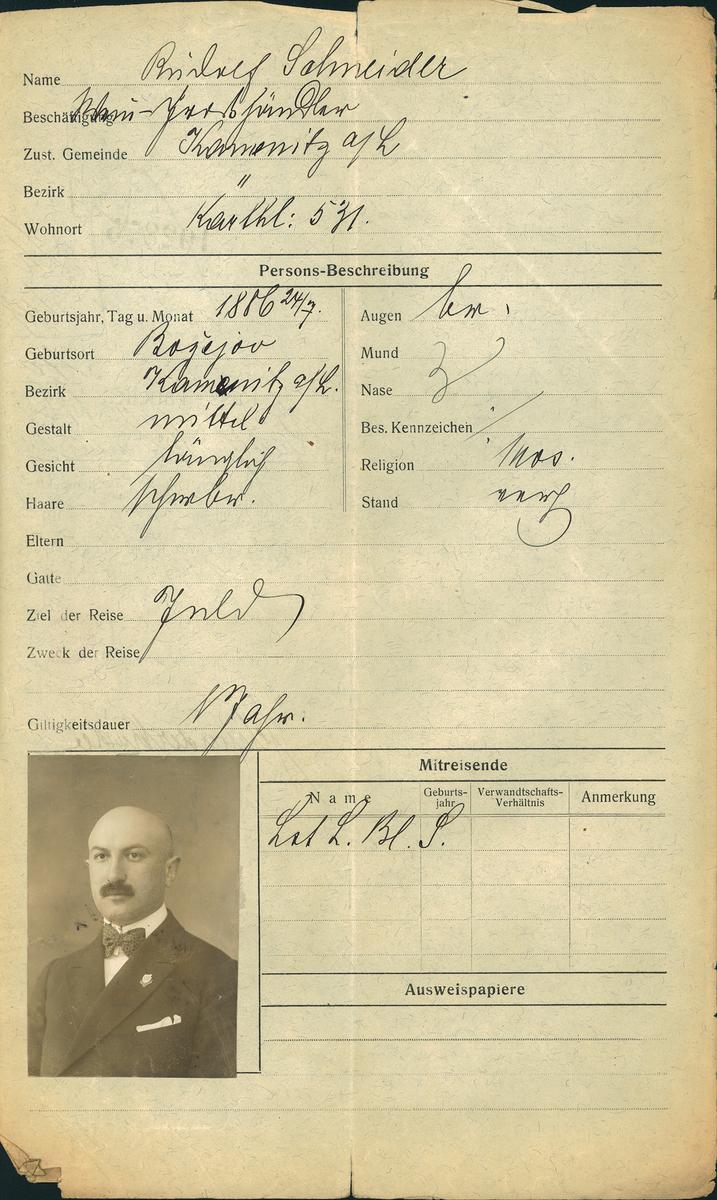 Name Rudolf Schneider
Beschäftigung Wein-Großhändler
Zust. Gemeinde Kamenitz a/L
Bezirk "
Wohnort Karlthl: 531.
Persons-Beschreibung
Geburtsjahr, Tag u. Monat 1886 24/7.
Geburtsort Božejov
Bezirk Kamenitz a/L.
Gestalt mittel
Gesicht länglich
Haare schwbr.
Augen br.
Mund
Nase
Bes. Kennzeichen
Religion Mos.
Stand verh
Eltern
Gatte
Ziel der Reise Inld
Zweck der Reise
Giltigkeitsdauer 1 Jahr.
Mitreisende
Name Geburts-jahr Verwandtschafts-Verhältnis Anmerkung
L. Bl. S.
Ausweispapiere